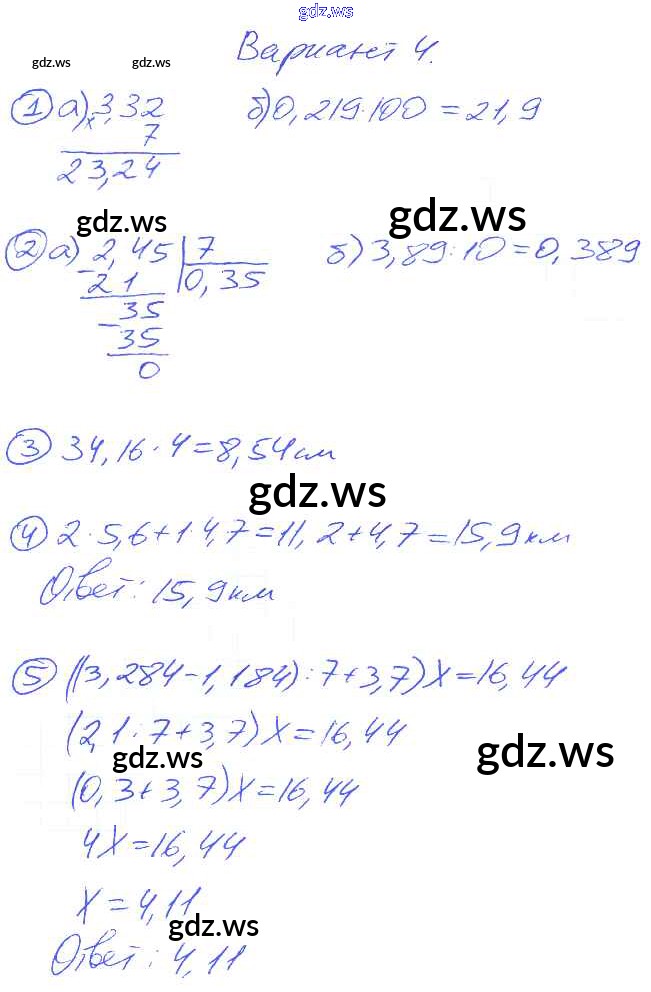 gdz.ws
Вариант 4.
gdz.ws gdz.ws
① а) 3,32 б) 0,219·100=21,9
× 7
23,24
gdz.ws
gdz.ws
② а) 2,45 | 7 б) 3,89:10=0,389
- 21 0,35
35
- 35
0
③ 34,16·4=8,54см
gdz.ws
④ 2·5,6+1·4,7=11,2+4,7=15,9км
Ответ: 15,9км
⑤ ((3,284-1,184):7+3,7)X=16,44
(2,1:7+3,7)X=16,44
gdz.ws gdz.ws
(0,3+3,7)X=16,44
4X=16,44
X=4,11
gdz.ws
Ответ: 4,11